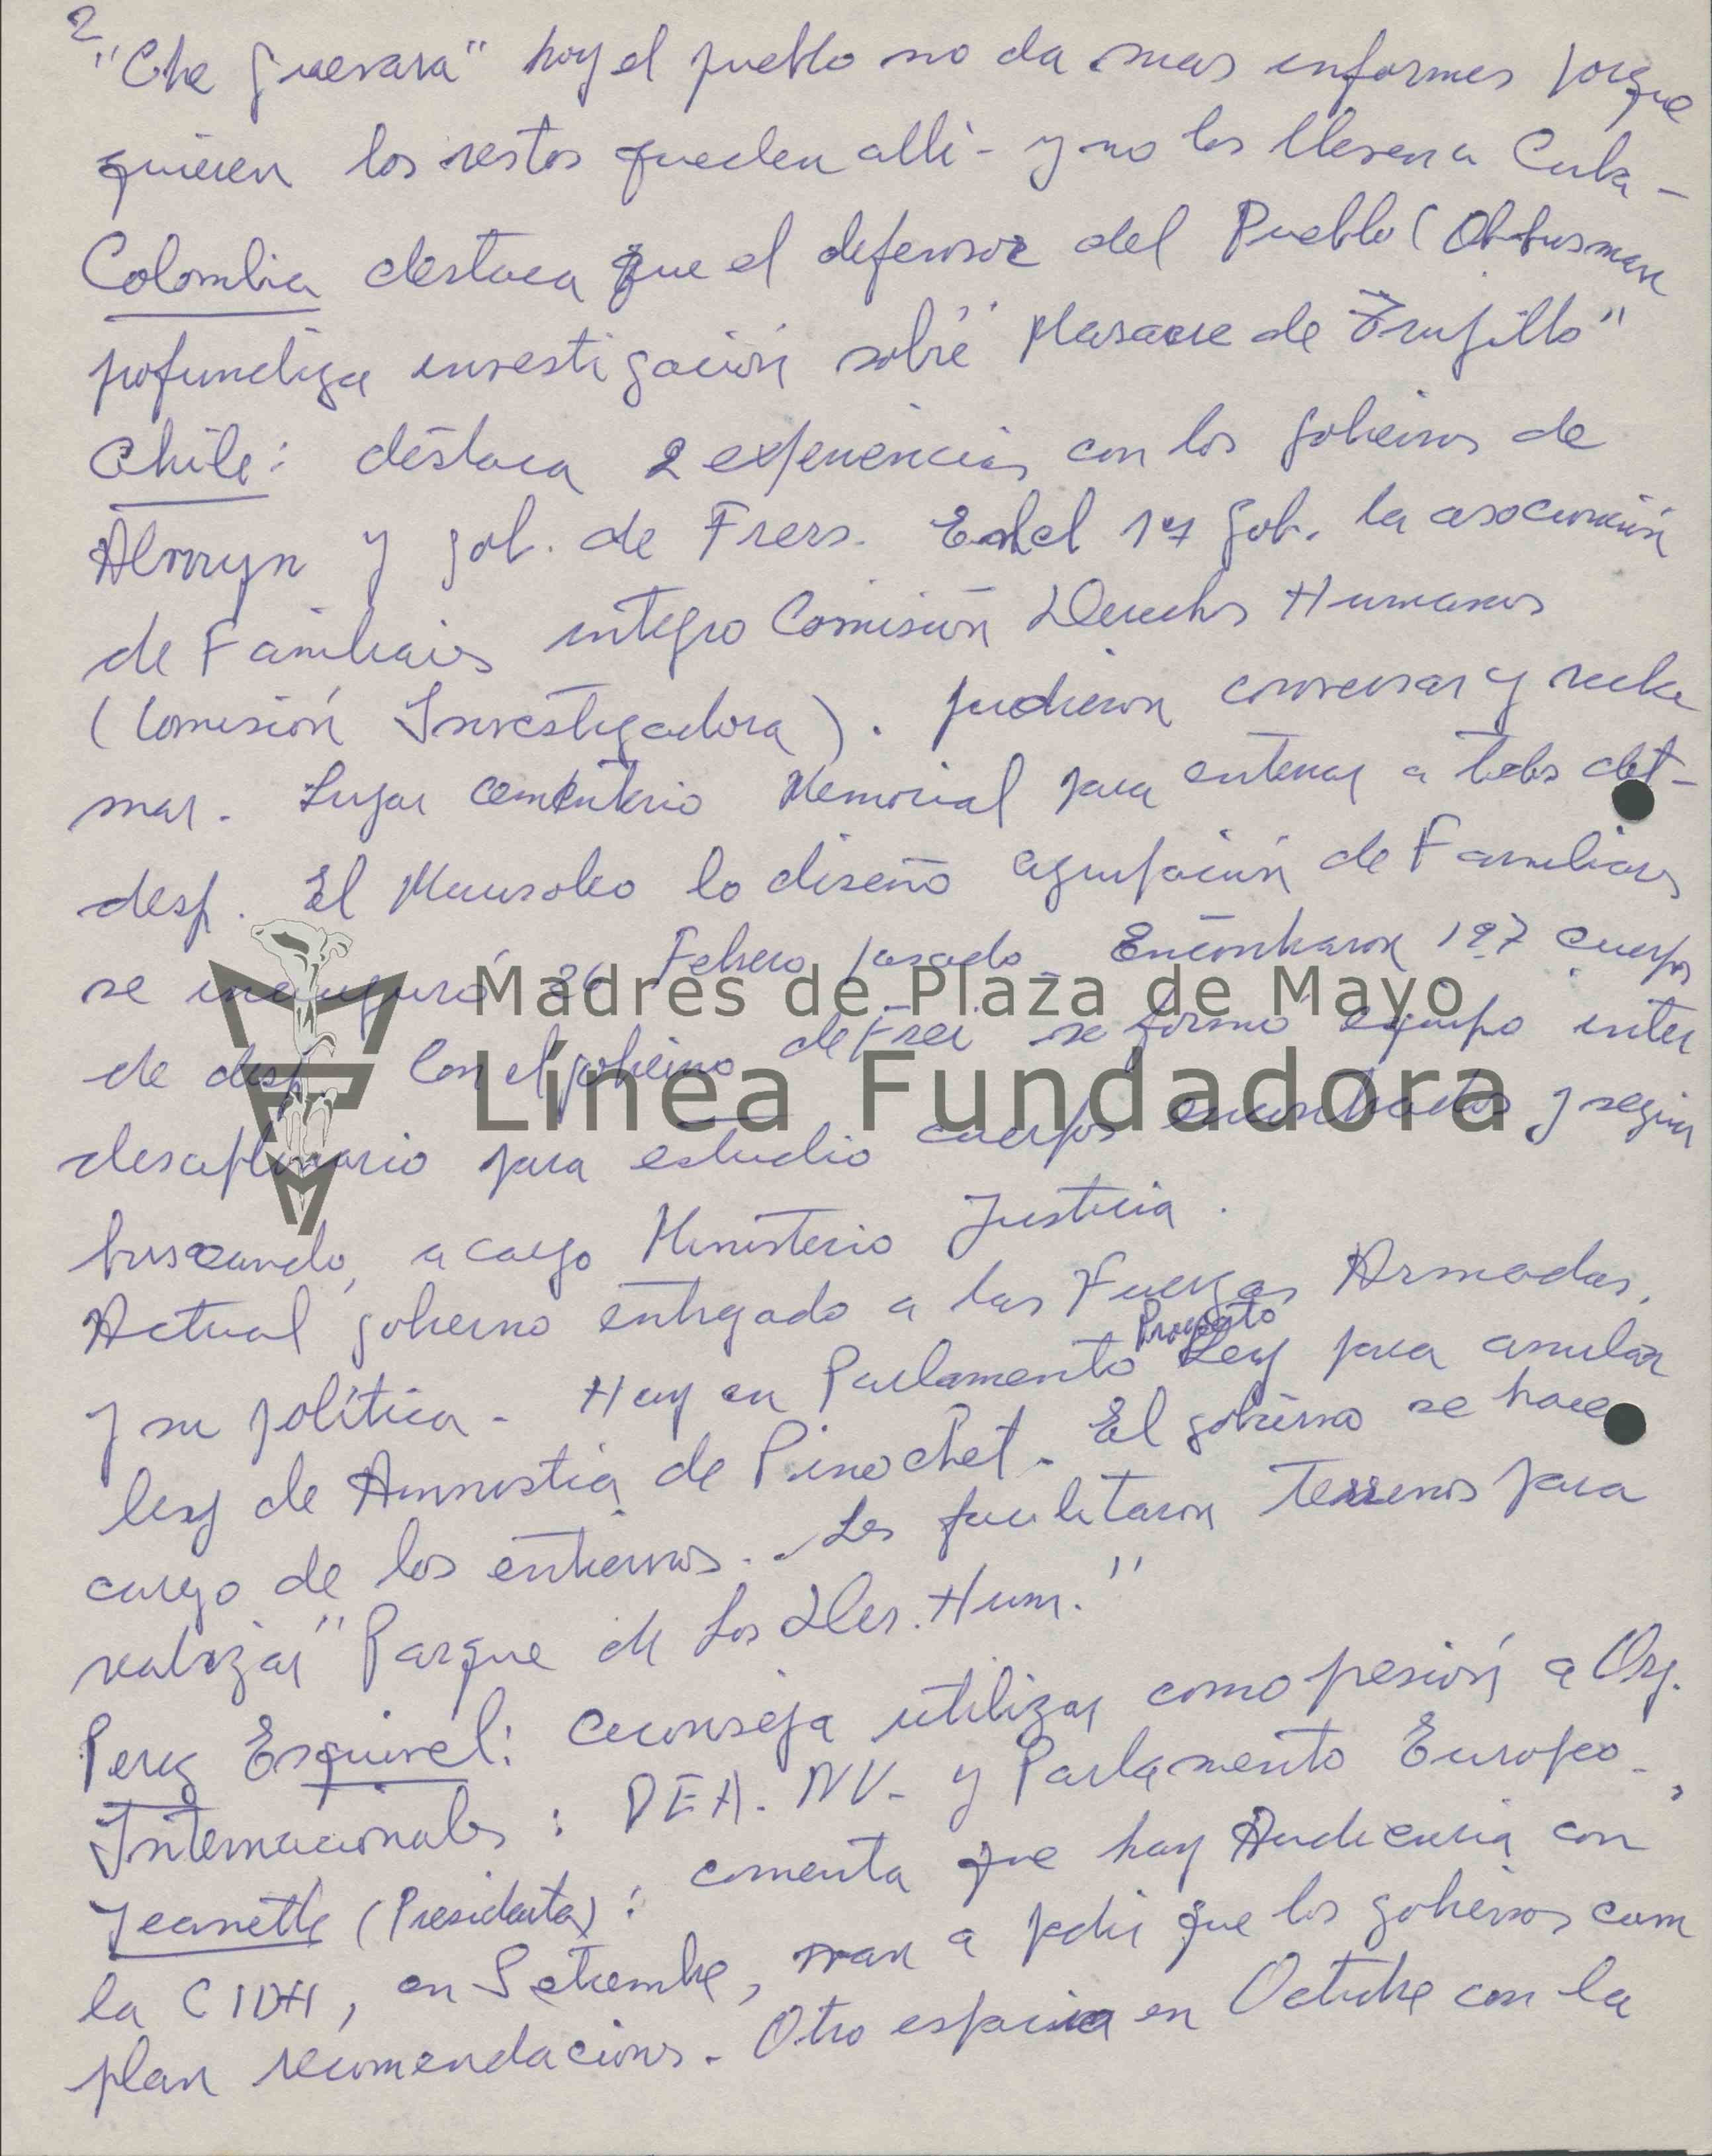 2
"Che Guevara" hoy el pueblo no da mas informes porque
quieren los restos queden alli - y no los lleven a Cuba -
Colombia destaca que el defensor del Pueblo (Obbusman
pofundiza investigación sobre "Masacre de Trujillo"
Chile: destaca 2 experiencias con los gobiernos de
Alwyn y gob. de Frers. En el 1er gob. la asociación
de Familiares integro Comisión Derechos Humanos
(Comisión Investigadora). pudieron conversar y recla
mar. Lugar cementerio Memorial para enterrar a todos det-
desp. El Mausoleo lo diseño agrupación de Familiares
se inauguró 26 Febrero pasado - Encontraron 197 cuerpos
Madres de Plaza de Mayo
de desp. Con el gobierno de Frei se formo equipo inter
Línea Fundadora
desciplinario para estudio cuerpos encontrados y seguir
buscando, a cargo Ministerio Justicia.
Actual gobierno entregado a las Fuerzas Armadas,
y su política - Hay en Parlamento Proyecto Ley para anular
ley de Amnistia de Pinochet - El gobierno se hace
cargo de los entierros. - Les facilitaron terrenos para
realizar "Parque de los Der. Hum."
Perez Esquivel: aconseja utilizar como presión a Org.
Internacionales: OEA. NU - y Parlamento Europeo -
Jeanette (Presidenta): comenta que hay Audiencia con
la CIDH, en Setiembre, van a pedir que los gobiernos cum
plan recomendaciones - Otro espacio en Octubre con la